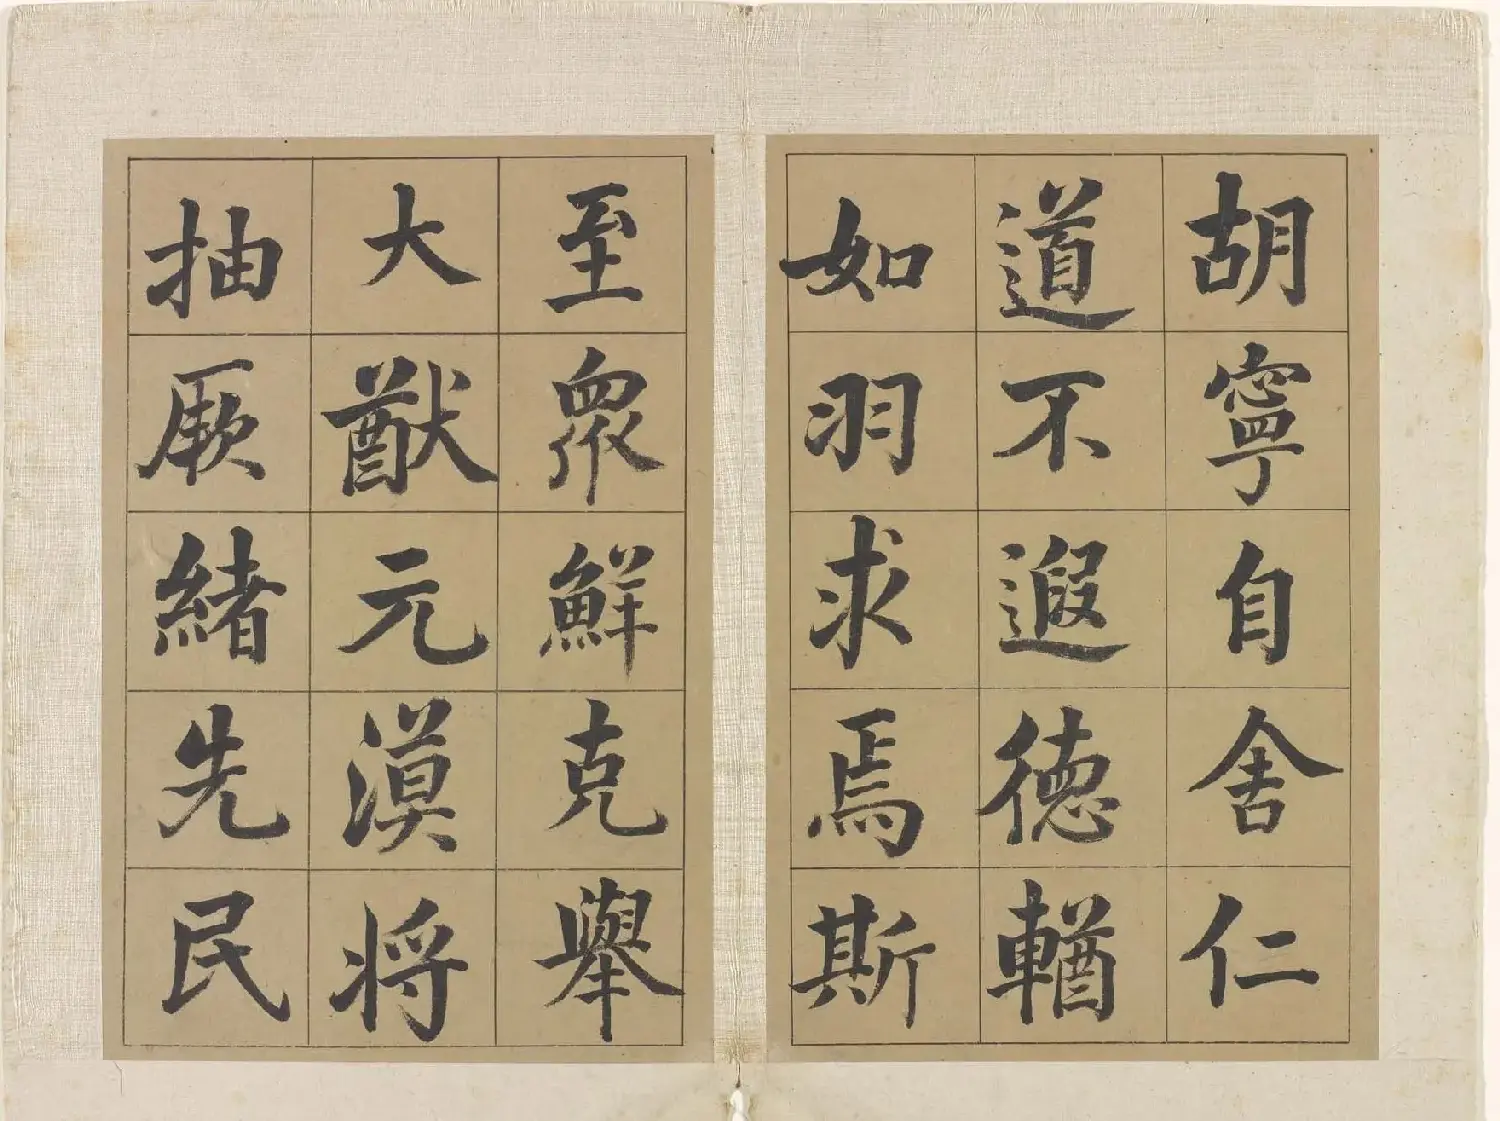 胡寧自舍仁
道不遐德輶
如羽求焉斯
至眾鮮克舉
大猷元漠將
抽厥緒先民